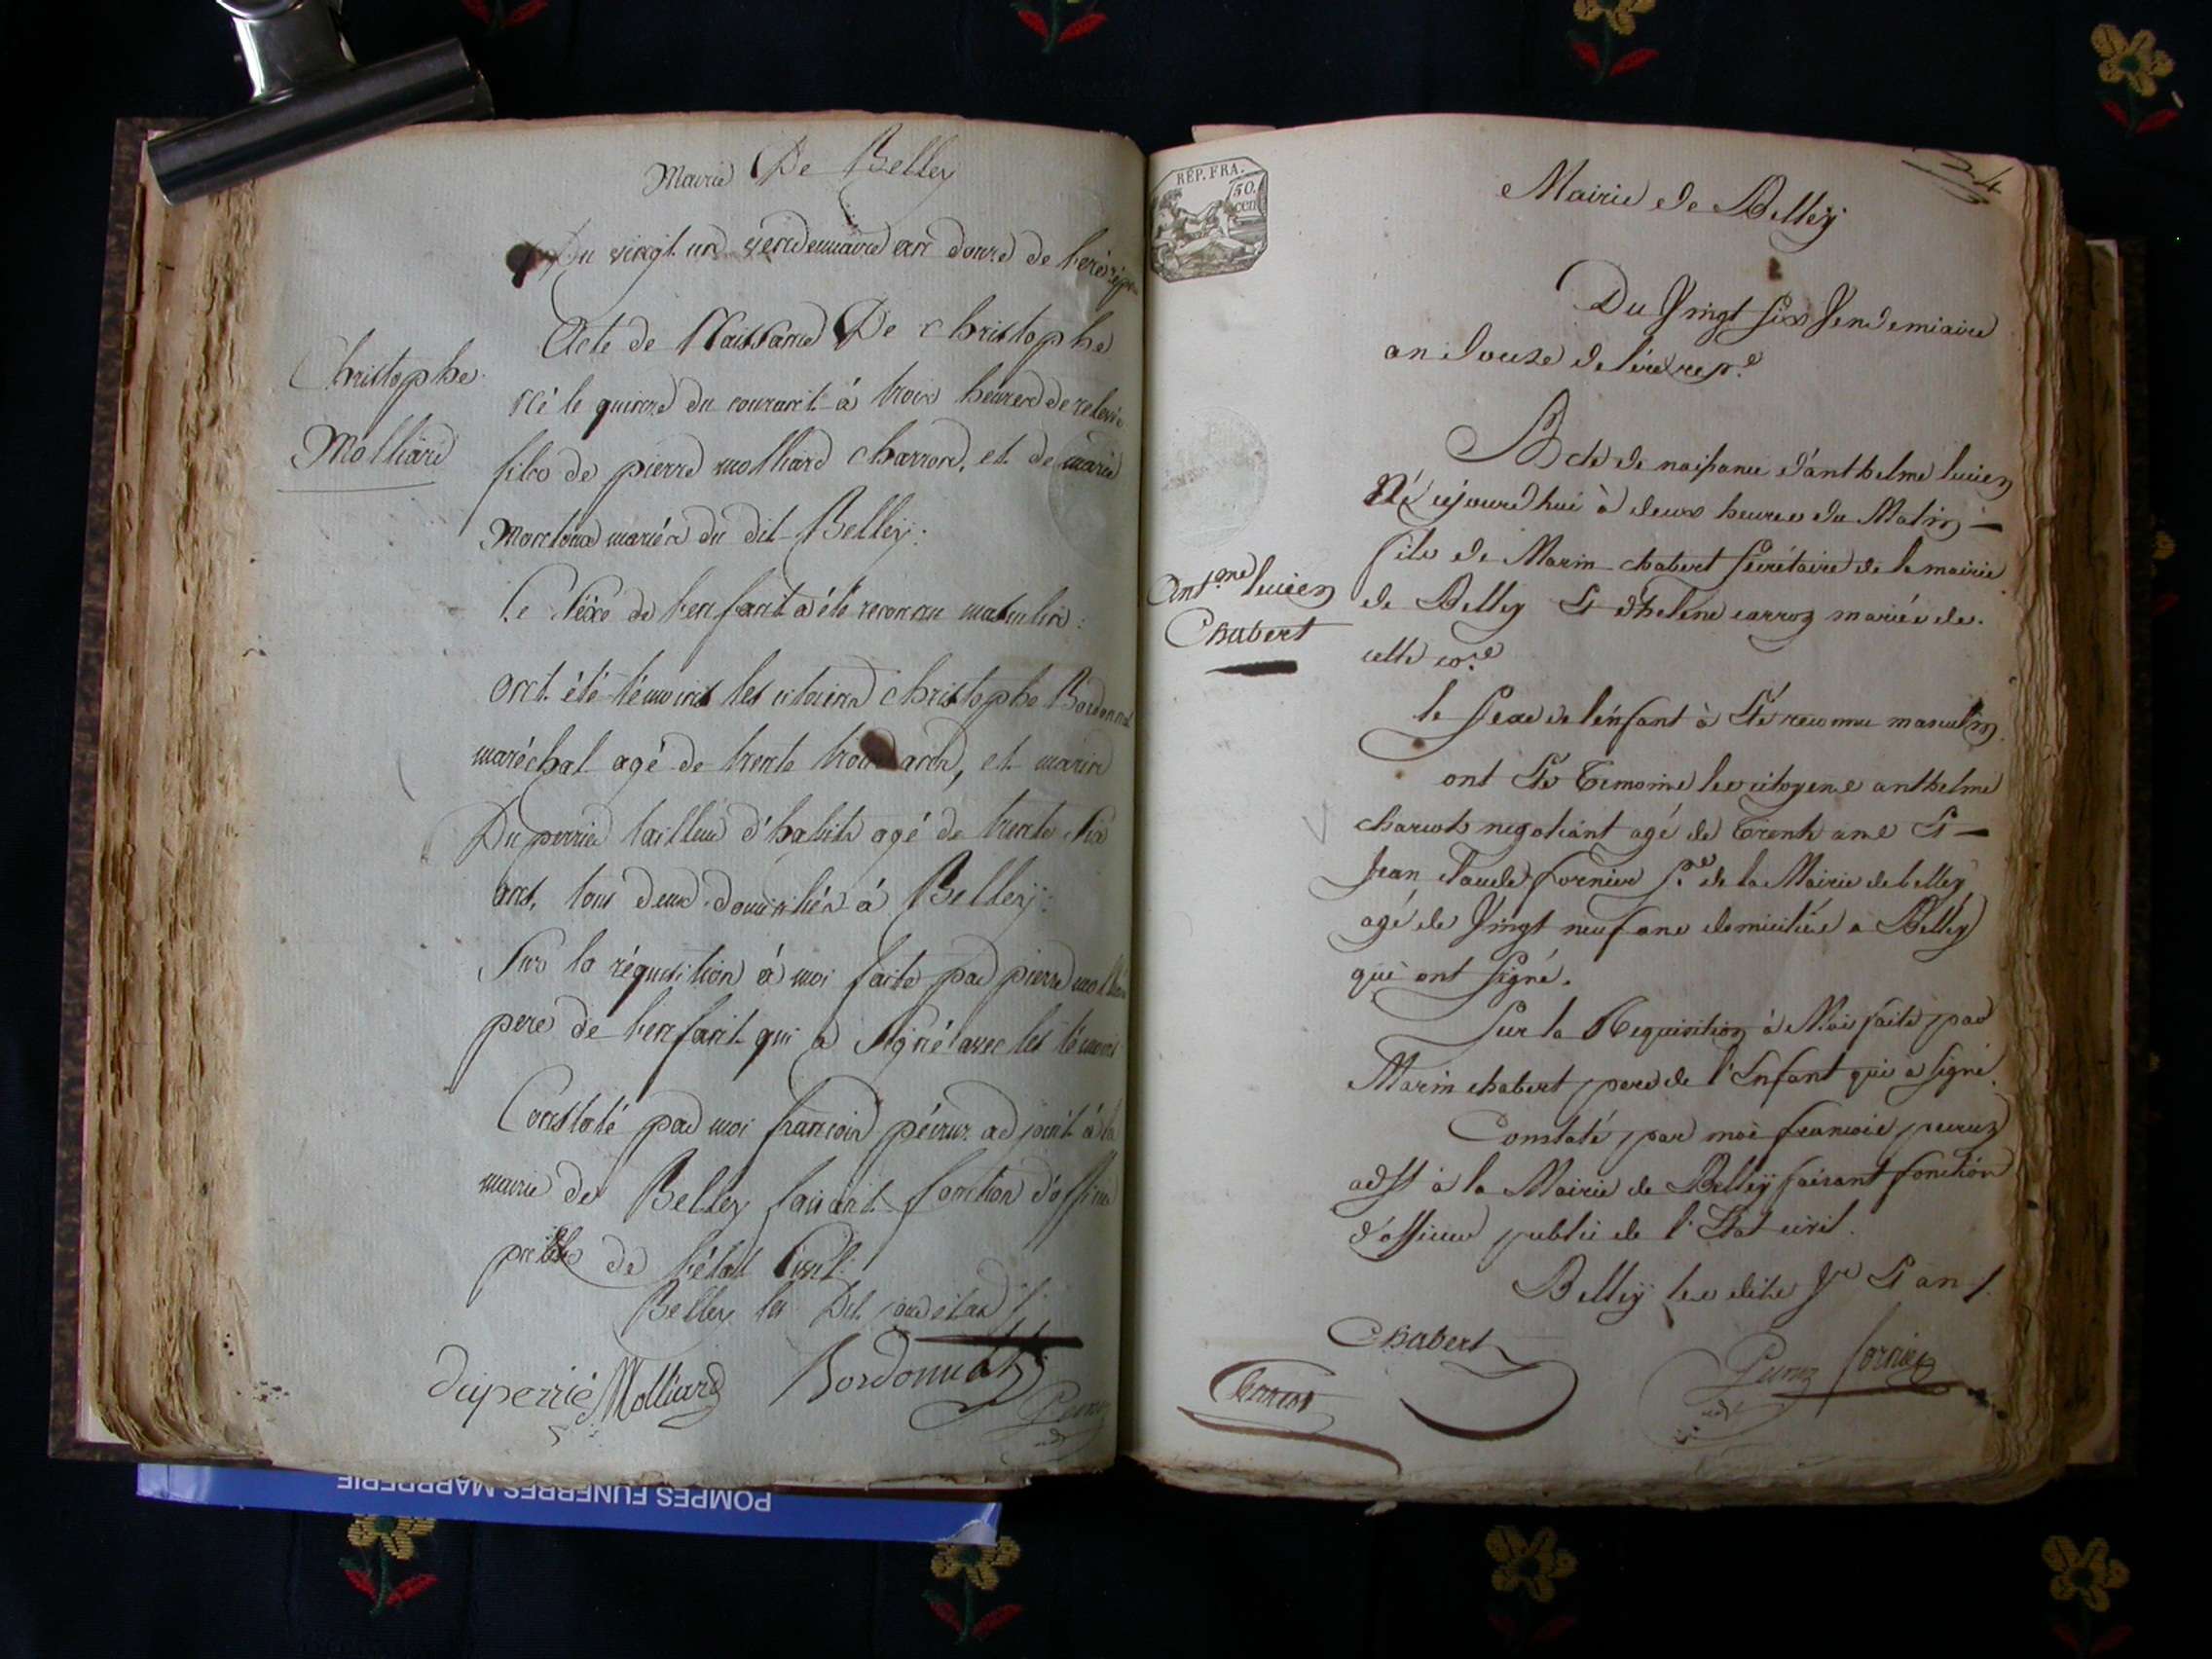 Mairie De Belley
Du vingt un vendemiaire an douze de l'ere rép
Acte de Naissance De Christophe
né le quinze du courant à trois heures de relevée
fils de pierre molliard charron, et de marie
mariés du dit Belley.
Le Sexe de l'enfant a été reconnu masculin.
ont été témoins les citoiens christophe Bordonnat
maréchal agé de trente trois ans, et marin
Duperrier tailleur d'habits agé de trente six
ans, tous deux domiciliés à Belley.
Sur la réquisition à moi faite par pierre molliard
pere de l'enfant qui a signé avec les témoins
Constaté par moi francois péiruz adjoint à la
mairie de Belley faisant fonction d'officier
public de l'état Civil.
Belley les dit jour et an
duperrié Molliard Bordonnat
Christophe
Molliard
REP. FRA.
50.
cen
Mairie de Belley
Du Vingt six Vendemiaire
an douze de l'ère rep.e
Acte de naissance d'anthelme lucien
Né cejourd'hui à deux heures du Matin
fils de Marin chabert secrétaire de la mairie
de Belley Et d'helene carroz mariés de
cette co.e
le sexe de l'enfant à Eté reconnu masculin.
ont Eté Temoins les citoyens anthelme
negotiant agé de Trente ans Et
Jean claude fornier s.re de la Mairie de belley
agé de Vingt neuf ans domiciliés a Belley
qui ont signé.
Sur la Requisition à Moi faite par
Marin chabert pere de l'Enfant qui a signé.
Constaté par moi francois peiruz
adjt à la Mairie de Belley faisant fonction
d'officier public de l'Etat civil.
Belley les dits Jr Et an
Chabert
Peiruz fornier
Ant.me lucien
Chabert
POMPES FUNEBRES MARBRERIE